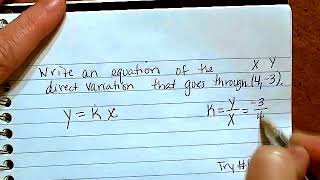 Write an equation of the X Y
direct variation that goes through (4,-3).
y = kx
K = Y/X = -3/4
Try #